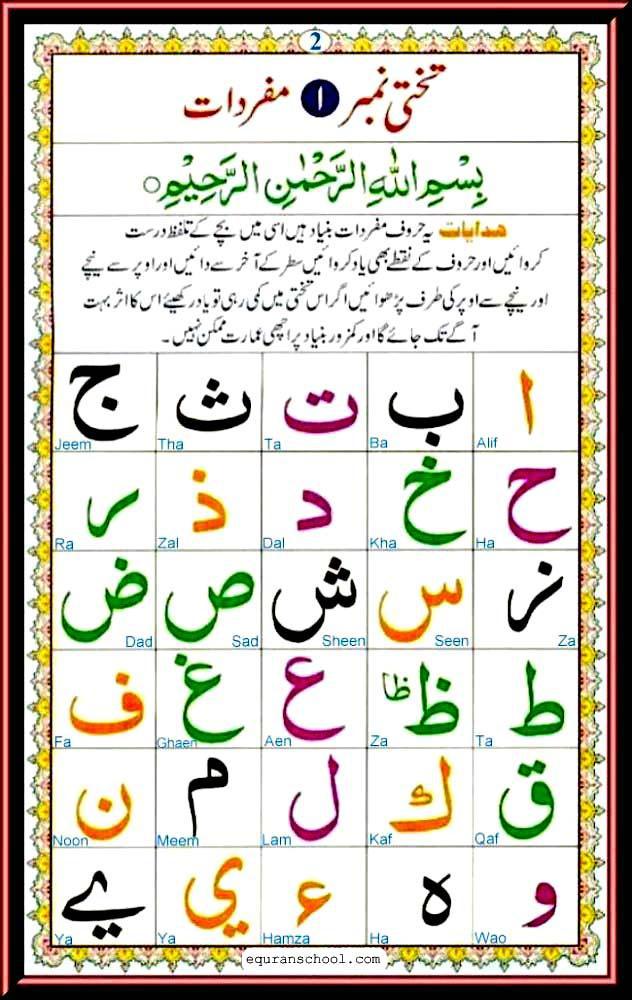 2
تختی نمبر ۱ مفردات
بِسْمِ اللهِ الرَّحْمٰنِ الرَّحِيْمِ ○
ھدایات یہ حروف مفردات بنیاد ہیں اسی میں بچے کے تلفظ درست
کروائیں اور حروف کے نقطے بھی یاد کروائیں سطر کے آخر سے دائیں اور اوپر سے نیچے
اور نیچے سے اوپر کی طرف پڑھوائیں اگر اس تختی میں کمی رہی تو یاد رکھیئے اس کا اثر بہت
آگے تک جائے گا اور کمزور بنیاد پر اچھی عمارت ممکن نہیں۔
ا ب ت ث ج
Alif Ba Ta Tha Jeem
ح خ د ذ ر
Ha Kha Dal Zal Ra
ز س ش ص ض
Za Seen Sheen Sad Dad
ط ظ ظا ع غ ف
Ta Za Aen Ghaen Fa
ق ك ل م ن
Qaf Kaf Lam Meem Noon
و ہ ء ي ے
Wao Ha Hamza Ya Ya
equranschool.com